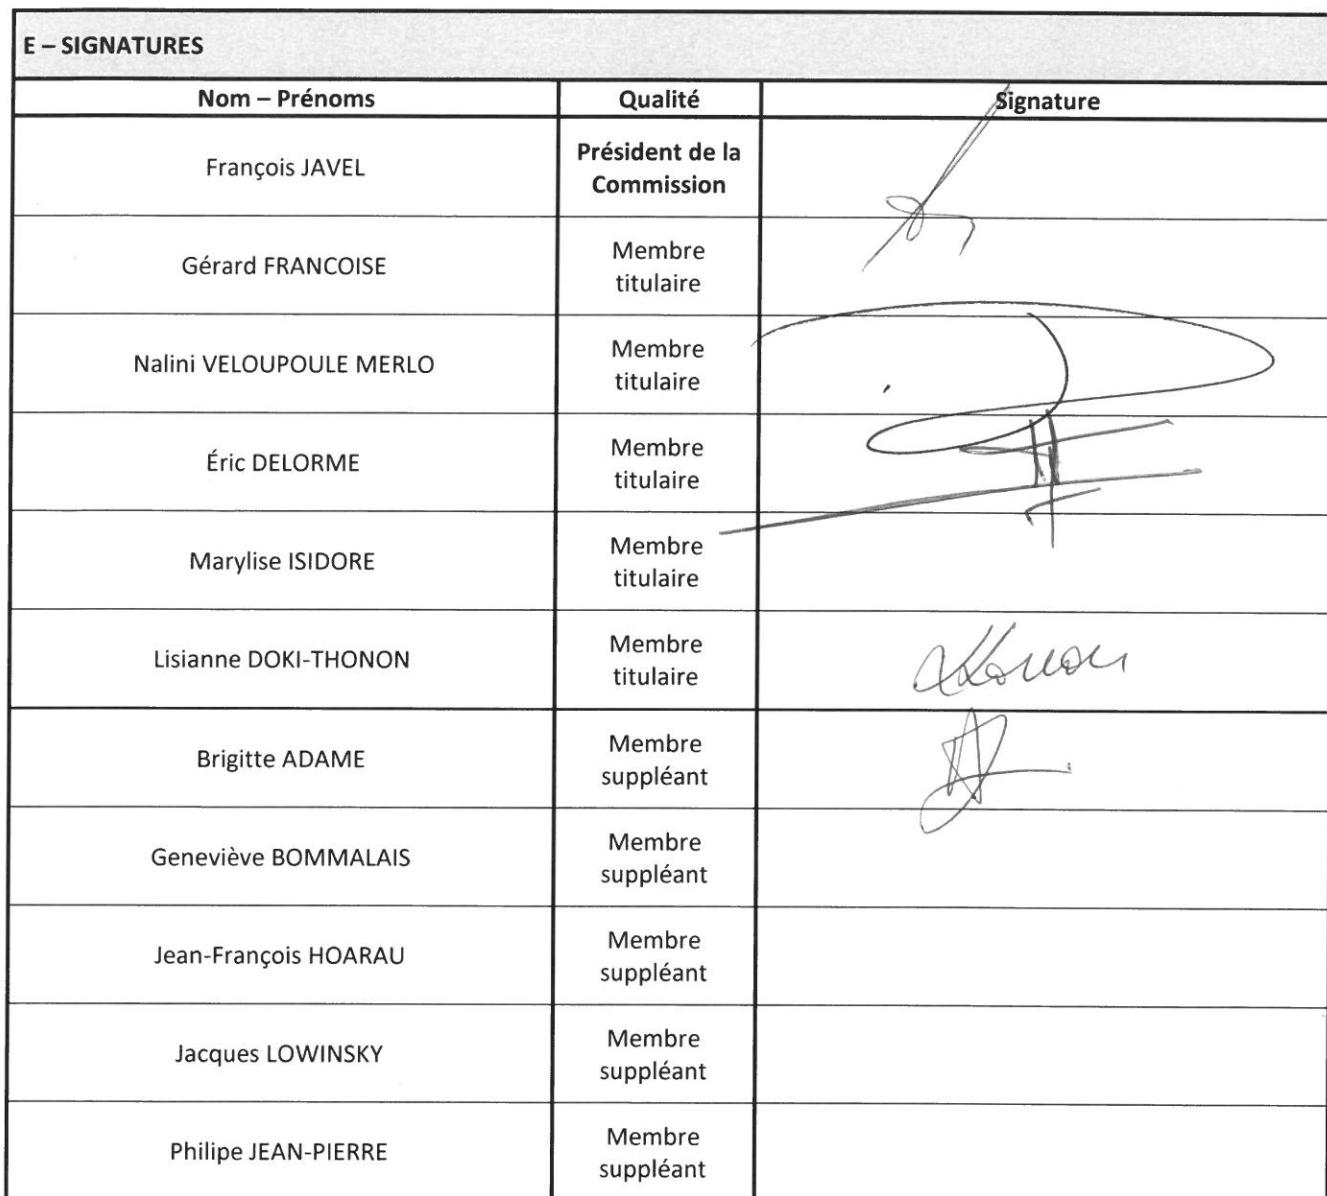 E – SIGNATURES
Nom – Prénoms Qualité Signature
François JAVEL Président de la
Commission
Gérard FRANCOISE Membre
titulaire
Nalini VELOUPOULE MERLO Membre
titulaire
Éric DELORME Membre
titulaire
Marylise ISIDORE Membre
titulaire
Lisianne DOKI-THONON Membre
titulaire
Brigitte ADAME Membre
suppléant
Geneviève BOMMALAIS Membre
suppléant
Jean-François HOARAU Membre
suppléant
Jacques LOWINSKY Membre
suppléant
Philipe JEAN-PIERRE Membre
suppléant